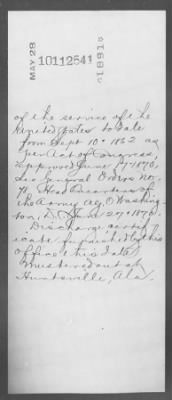 MAY 28
10112541
1891
of the service of the
United States to date
from Sept 10" 1862 as
per Act of Congress,
approved June 1870.
See General Orders No.
78, Head Quarters of
the Army Ag. O Washing-
ton, D.C. June 27" 1870.
Discharge certifi
cate furnished by this
office this date)
Mustered out at
Huntsville, Ala.